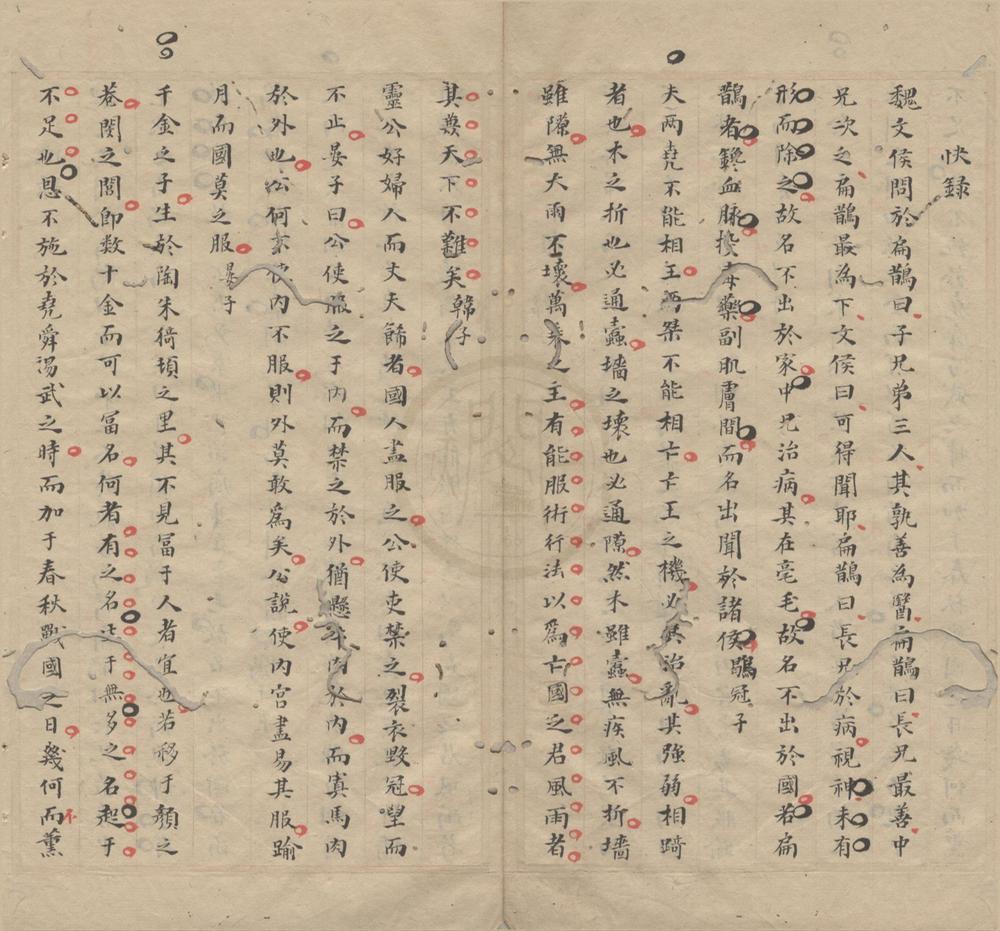 快録
魏文侯問於扁鵲曰子兄弟三人其孰善為醫扁鵲曰長兄最善中
兄次之扁鵲最為下文侯曰可得聞耶扁鵲曰長兄於病視神未有
形而除之故名不出於家中兄治病其在毫毛故名不出於國若扁
鵲者鑱血脉投毒藥副肌膚間而名出聞於諸侯鶡冠子
夫兩堯不能相王兩桀不能相亡亡王之機必其治亂其強弱相踦
者也木之折也必通蠹墻之壞也必通隙然木雖蠹無疾風不折墻
雖隙無大雨不壞萬乗之主有能服術行法以爲亡國之君風雨者
其兼天下不難矣韓子
靈公好婦人而丈夫餙者國人盡服之公使吏禁之裂衣毀冠望而
不止晏子曰公使服之于内而禁之於外猶懸牛肉於内而賣馬肉
於外也公何不使内不服則外莫敢爲矣公說使内宫盡易其服踰
月而國莫之服晏子
千金之子生於陶朱猗頓之里其不見冨于人者宜也若移于顔之
巷閔之閭即数十金而可以冨名何者有之名生于無多之名起于
不足也恩不施於堯舜湯武之時而加于春秋戰國之日幾何而不薰